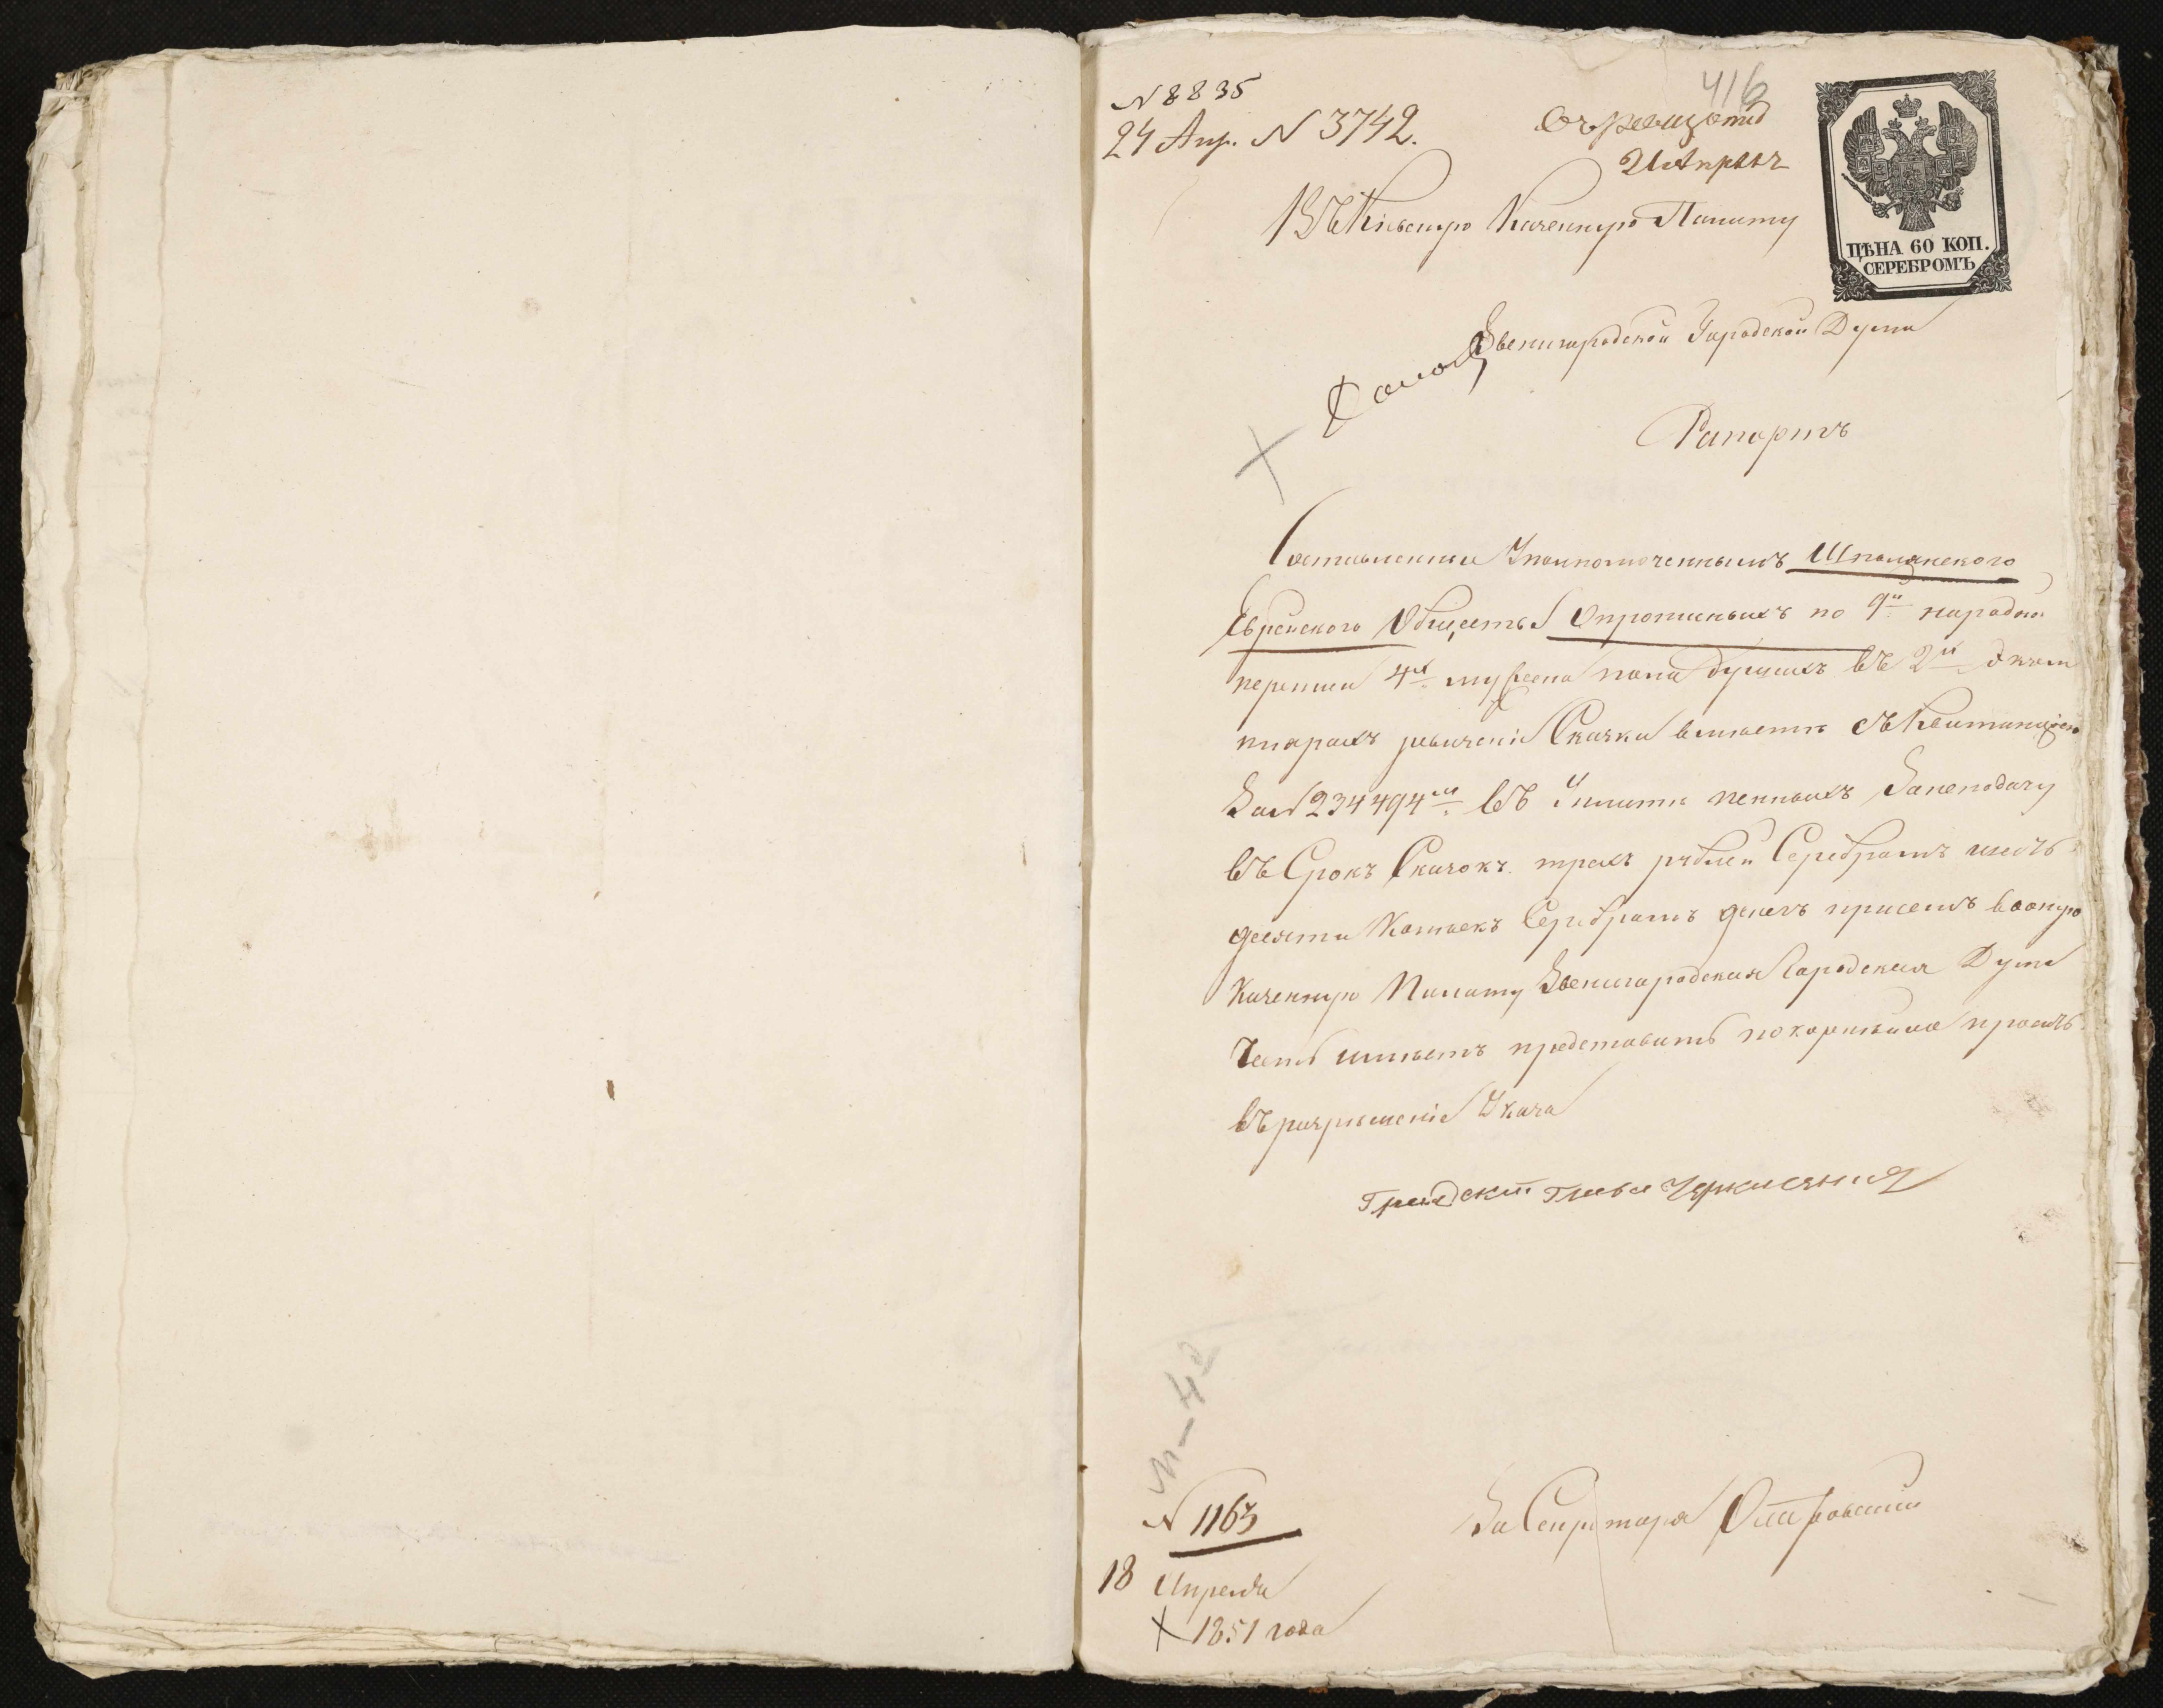 № 8835
24 Апр. № 3742.
416
Съ ревизотд
21 Апрѣл
ЦѢНА 60 КОП.
СЕРЕБРОМЪ
Въ Кіевскую Казенную Палату
Звенигородской Городской Думы
Рапортъ
Составленные Уполномоченнымъ Шполянского
Еврейского Общества О прописныхъ по 9й народной
переписи 4х мужеска пола душахъ въ 2х экзем
плярахъ ревизскіе Сказки вместѣ съ Квитанціею
За № 234494м въ Уплатѣ пенныхъ За неподачу
въ Срокъ Сказокъ трехъ рублей Серебромъ шесть
десяти Копѣекъ Серебромъ денегъ присемъ въ оную
Казенную Палату Звенигородская Городская Дума
Честь имѣетъ представить покорнѣйше просить
въ разрешеніе Указа
Градскій Глава
№ 1163
18 Апреля
1851 года
За Секретаря